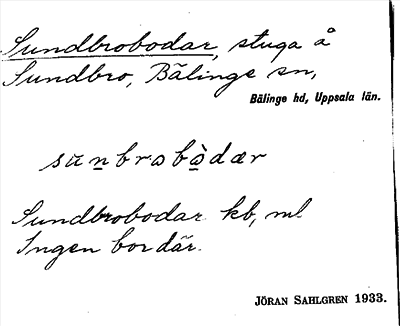 Sundbrobodar, stuga å
Sundbro, Bälinge sn,
Bälinge hd, Uppsala län.
sunbrobòdær
Sundbrobodar kb, ml
Ingen bor där.
JÖRAN SAHLGREN 1933.